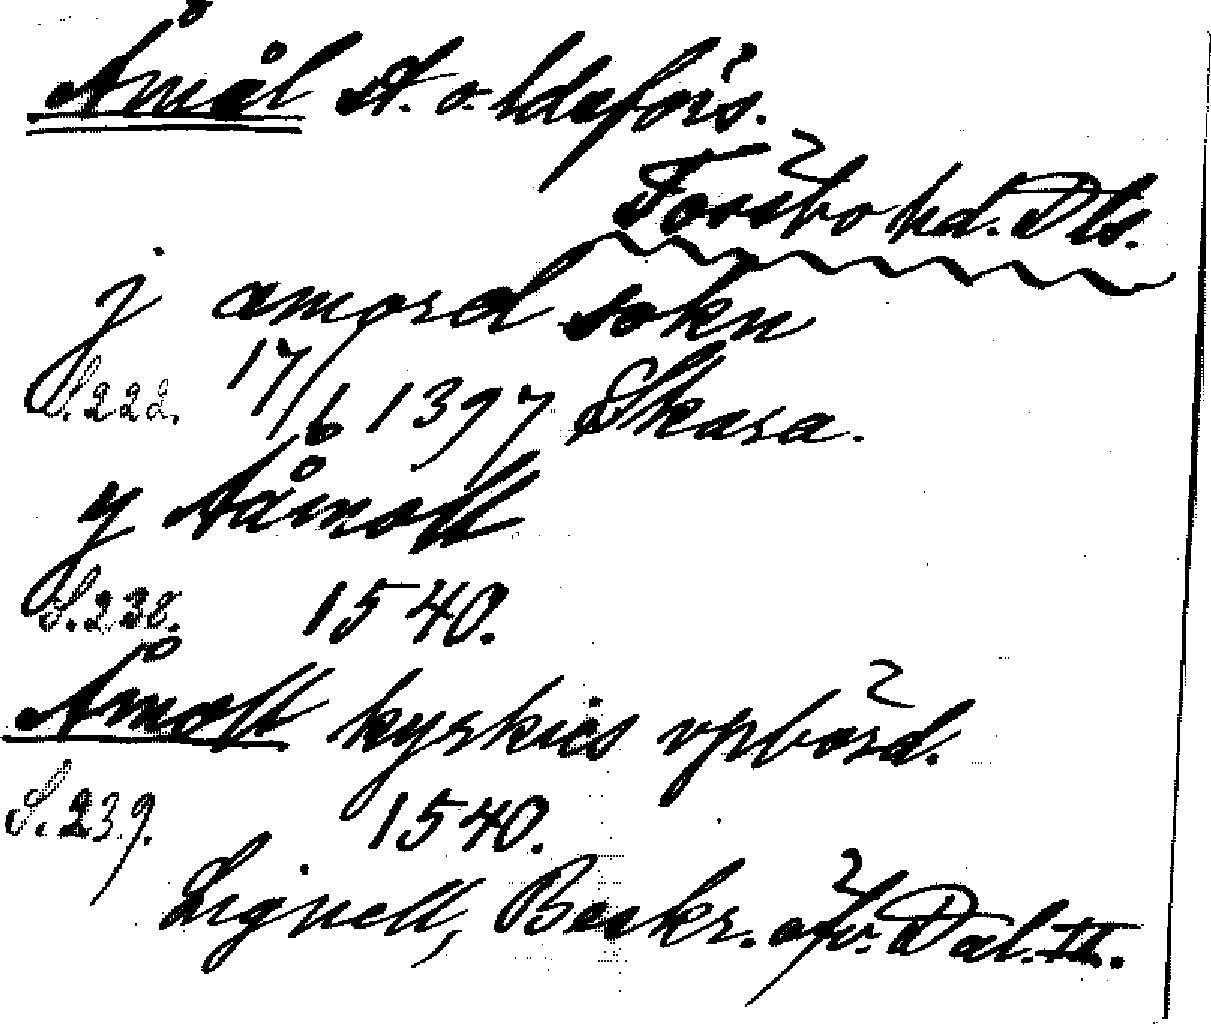 Åmål St. o. ldsförs.
Tössbo hd. Dls.
j amord sokn
S. 222. 17/6 1397 Skara.
y Aåmoll
S. 238. 1540.
Åmoll kyrkies vpbörd.
S. 239. 1540.
Lignell, Beskr. öfv. Dal. II.